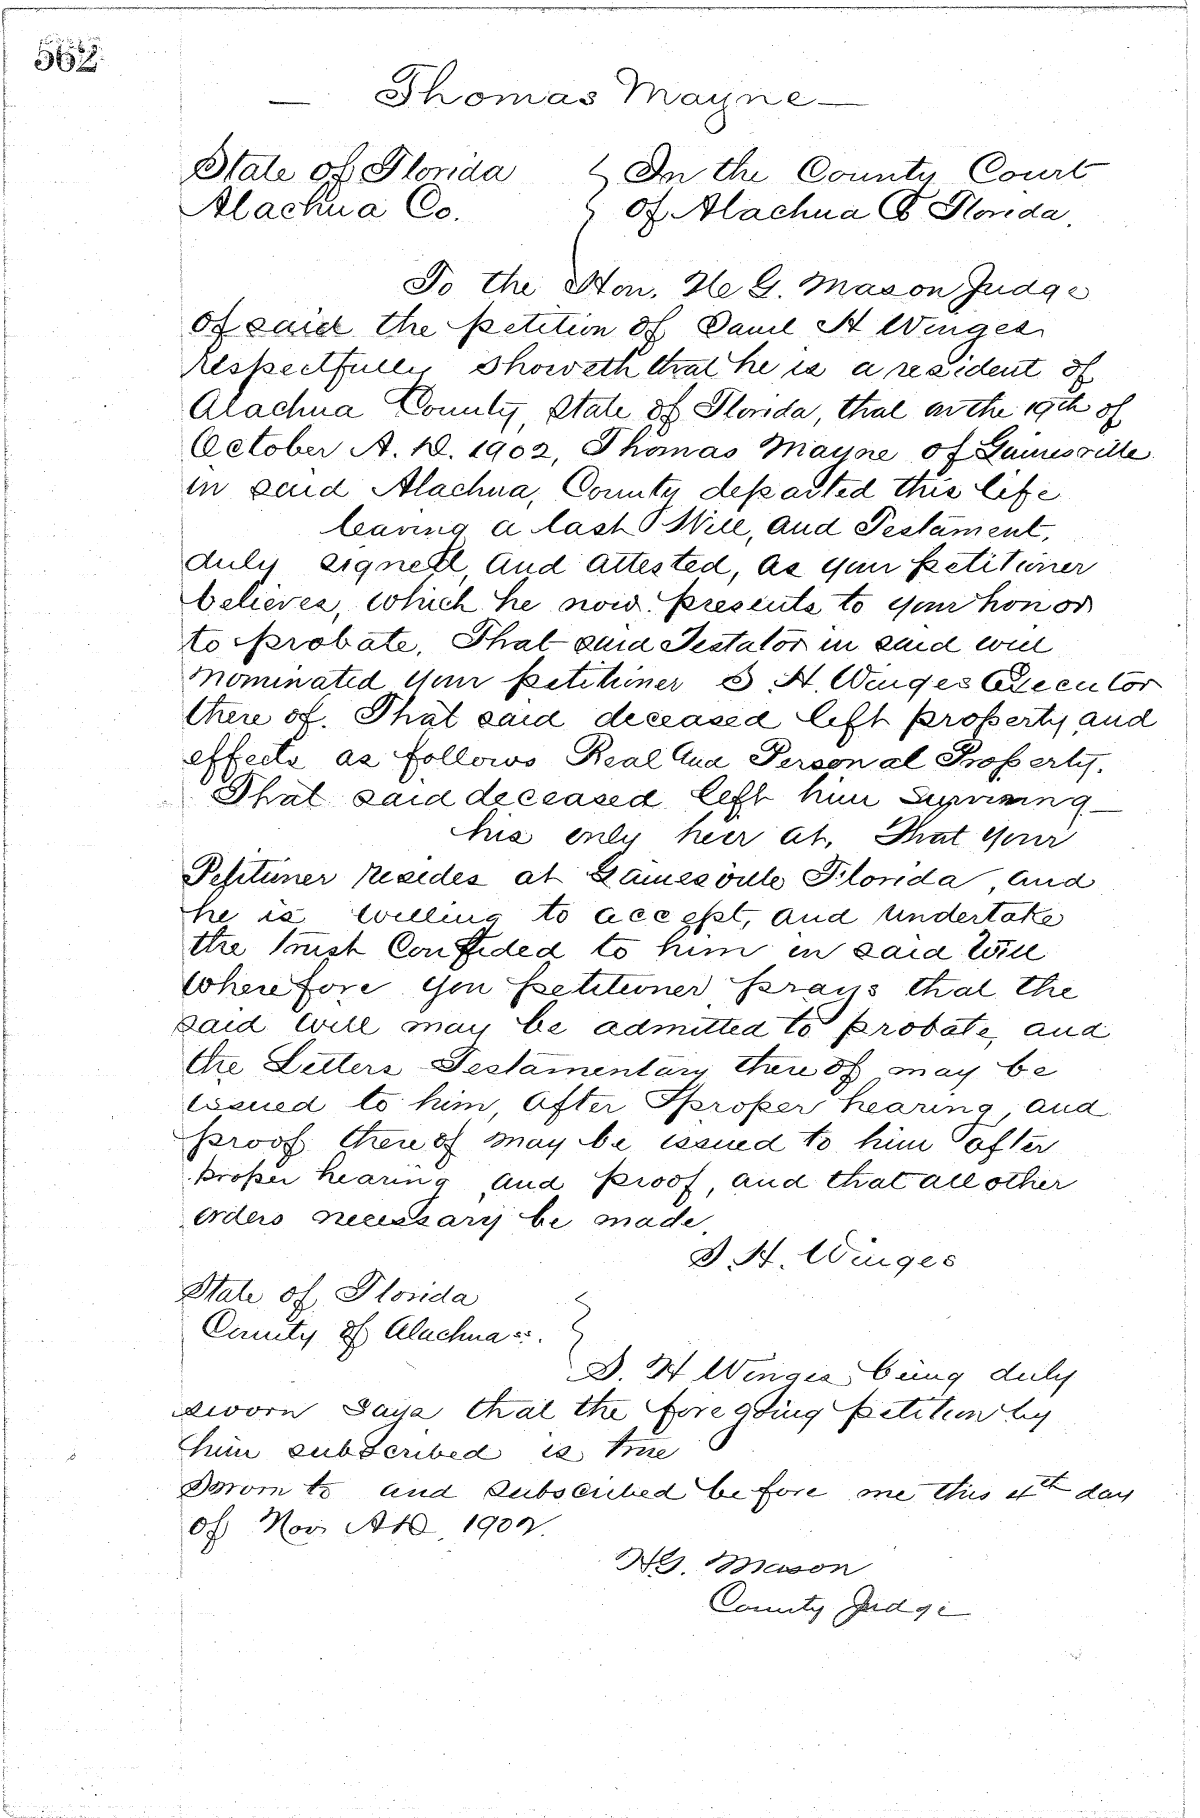 562
— Thomas Mayne —
State of Florida } In the County Court
Alachua Co. } of Alachua Co Florida.
To the Hon. H G. Mason Judge
of said the petition of Saml H Winges
respectfully showeth that he is a resident of
Alachua County, State of Florida, that on the 19th of
October A. D. 1902, Thomas Mayne of Gainesville
in said Alachua, County departed this life
leaving a last Will, and Testament,
duly signed, and attested, as your petitioner
believes, which he now presents to your honor
to probate. That said Testator in said will
nominated your petitioner S. H. Winges Executor
there of. That said deceased left property, and
effects as follows Real and Personal Property.
That said deceased left him surviving —
his only heir at. That your
Petitioner resides at Gainesville Florida, and
he is willing to accept, and undertake
the trust Confided to him in said Will
Wherefore you petitioner prays that the
said will may be admitted to probate, and
the Letters Testamentary there of may be
issued to him, after proper hearing, and
proof there of may be issued to him after
proper hearing and proof, and that all other
orders necessary be made.
S. H. Winges
State of Florida }
County of Alachua ss. }
S. H Winges being duly
sworn says that the foregoing petition by
him subscribed is true
Sworn to and subscribed before me this 4th day
of Nov. A D. 1902.
H G. Mason
County Judge